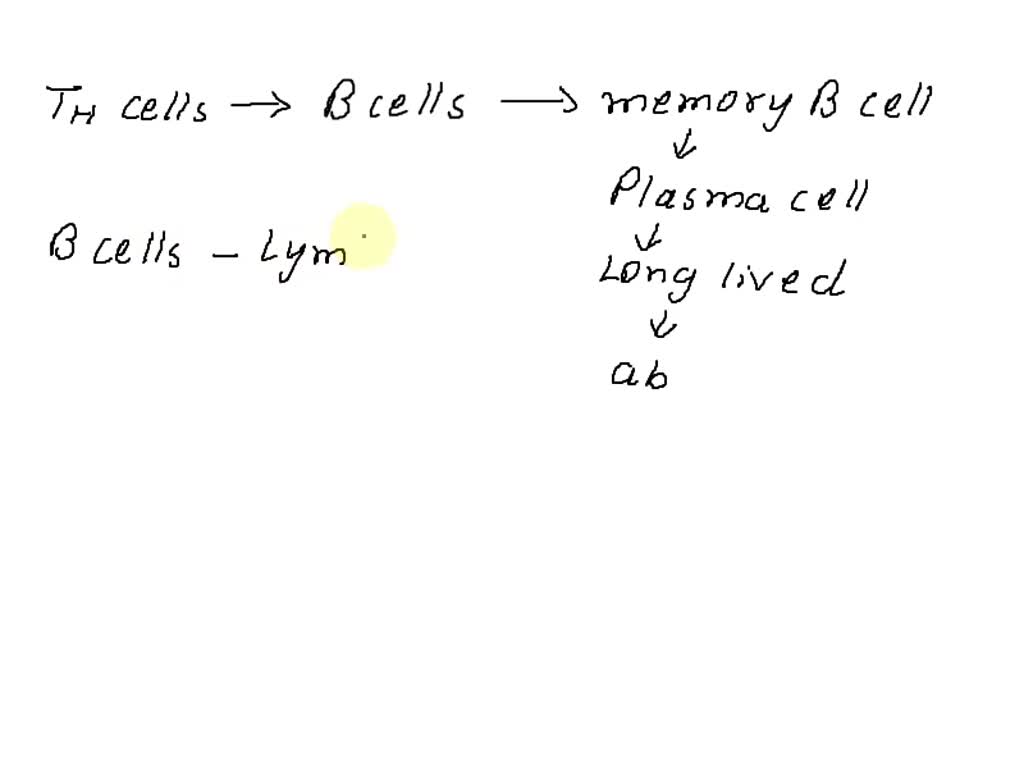 TH cells → B cells → memory B cell
↓
Plasma cell
B cells – Lym
↓
Long lived
↓
ab